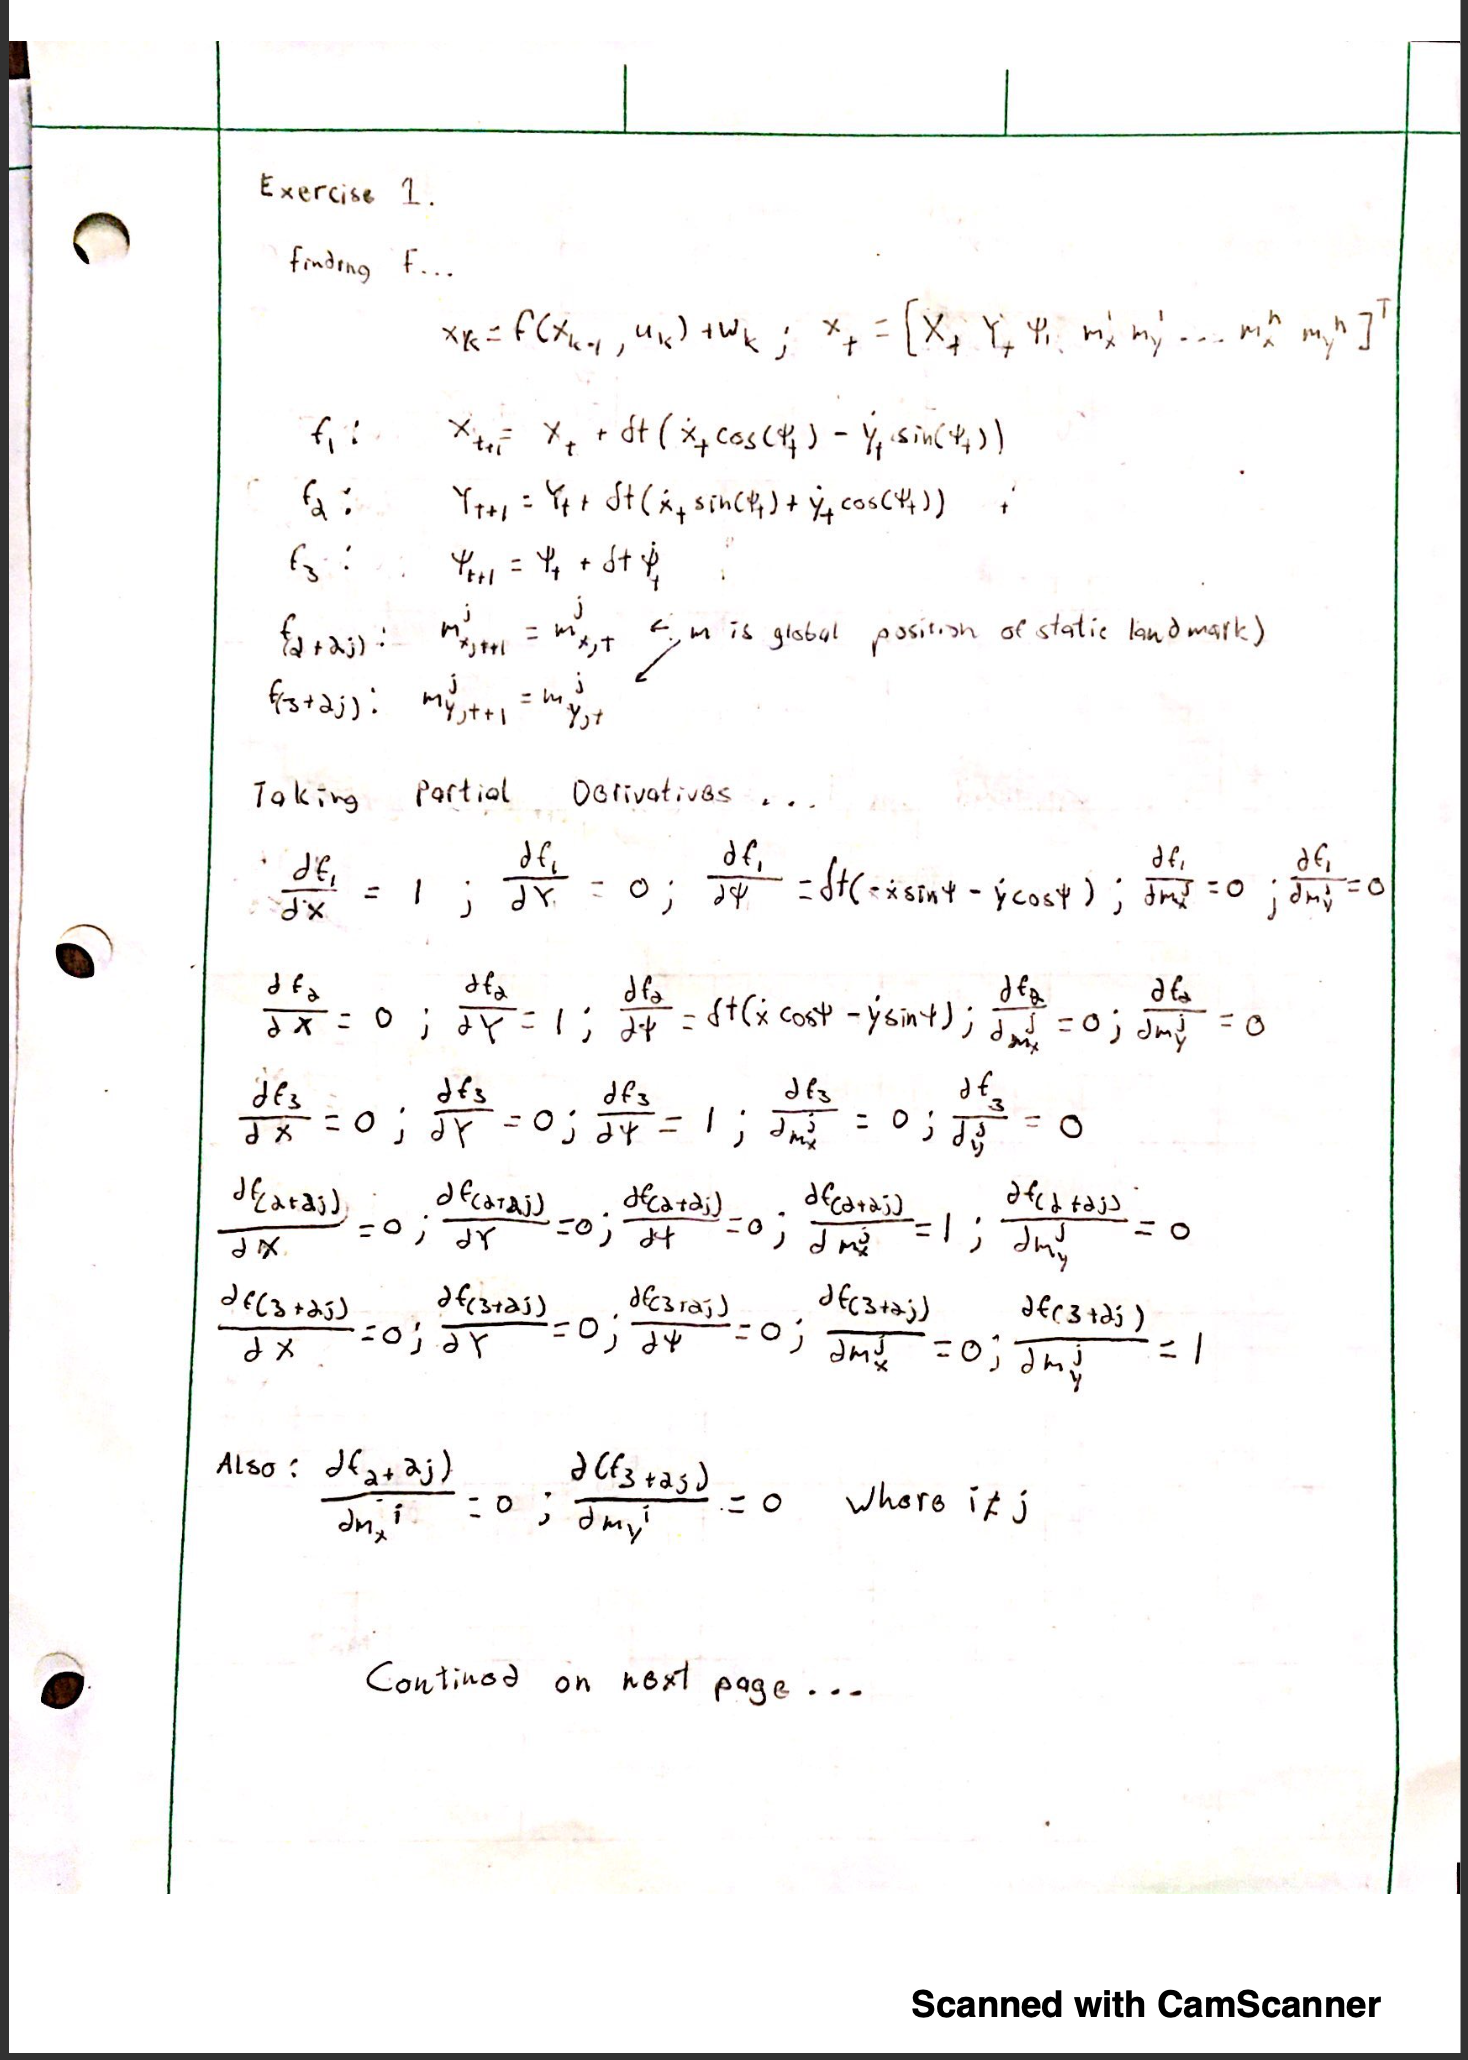 Exercise 1.
finding F...
x_k = f(x_{k-1}, u_k) + w_k ; x_t = [X_t Y_t Ψ_t m_x^1 m_y^1 ... m_x^n m_y^n]^T
f_1 : X_{t+1} = X_t + δt(ẋ_t cos(Ψ_t) - ẏ_t sin(Ψ_t))
f_2 : Y_{t+1} = Y_t + δt(ẋ_t sin(Ψ_t) + ẏ_t cos(Ψ_t))
f_3 : Ψ_{t+1} = Ψ_t + δt Ψ̇_t
f_(2+2j) : m^j_{x,t+1} = m^j_{x,t} ← m is global position of static landmark)
f_(3+2j) : m^j_{y,t+1} = m^j_{y,t}
Taking Partial Derivatives ...
∂f_1/∂X = 1 ; ∂f_1/∂Y = 0 ; ∂f_1/∂Ψ = δt(-ẋ sinΨ - ẏ cosΨ) ; ∂f_1/∂m_x^j = 0 ; ∂f_1/∂m_y^j = 0
∂f_2/∂X = 0 ; ∂f_2/∂Y = 1 ; ∂f_2/∂Ψ = δt(ẋ cosΨ - ẏ sinΨ) ; ∂f_2/∂m_x^j = 0 ; ∂f_2/∂m_y^j = 0
∂f_3/∂X = 0 ; ∂f_3/∂Y = 0 ; ∂f_3/∂Ψ = 1 ; ∂f_3/∂m_x^j = 0 ; ∂f_3/∂_y^j = 0
∂f_(2+2j)/∂X = 0 ; ∂f_(2+2j)/∂Y = 0 ; ∂f_(2+2j)/∂Ψ = 0 ; ∂f_(2+2j)/∂m_x^j = 1 ; ∂f_(2+2j)/∂m_y^j = 0
∂f_(3+2j)/∂X = 0 ; ∂f_(3+2j)/∂Y = 0 ; ∂f_(3+2j)/∂Ψ = 0 ; ∂f_(3+2j)/∂m_x^j = 0 ; ∂f_(3+2j)/∂m_y^j = 1
Also : ∂f_2+2j)/∂m_x^i = 0 ; ∂(f_3+2j)/∂m_y^i = 0 where i≠j
Continued on next page ...
Scanned with CamScanner